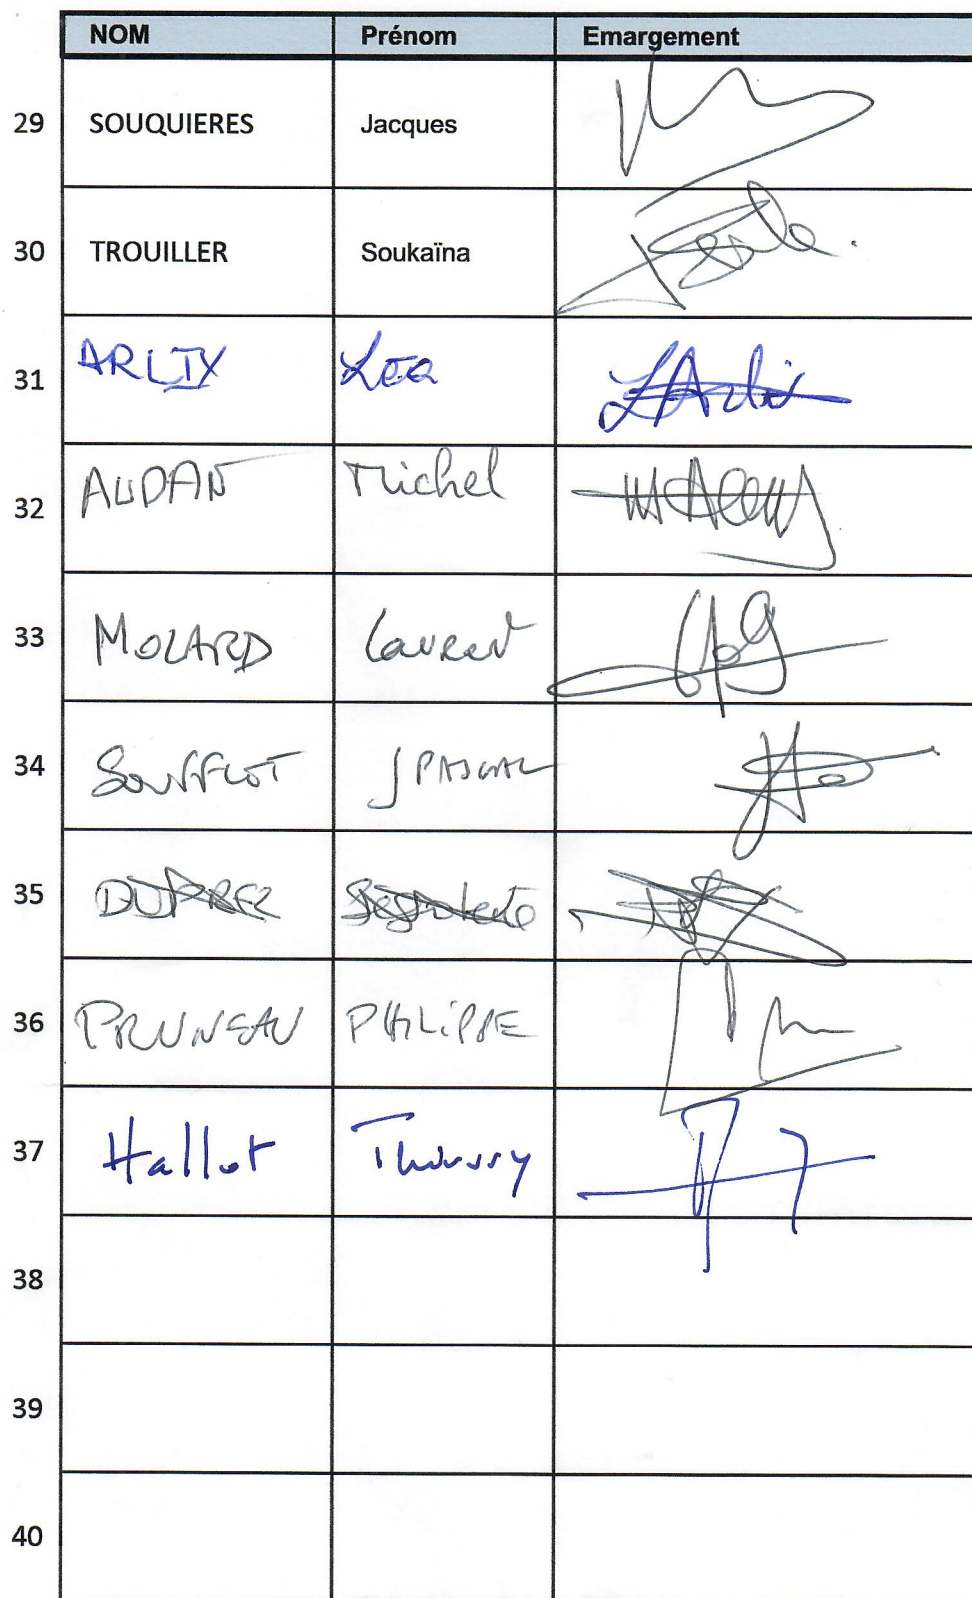 NOM Prénom Emargement
29 SOUQUIERES Jacques
30 TROUILLER Soukaïna
31 ARLIX Léa
32 AUDAN Michel
33 MOLARD Laurent
34 SOUFFLOT J PASCAL
35
36 PRUNEAU PHILIPPE
37 Hallot Thierry
38
39
40